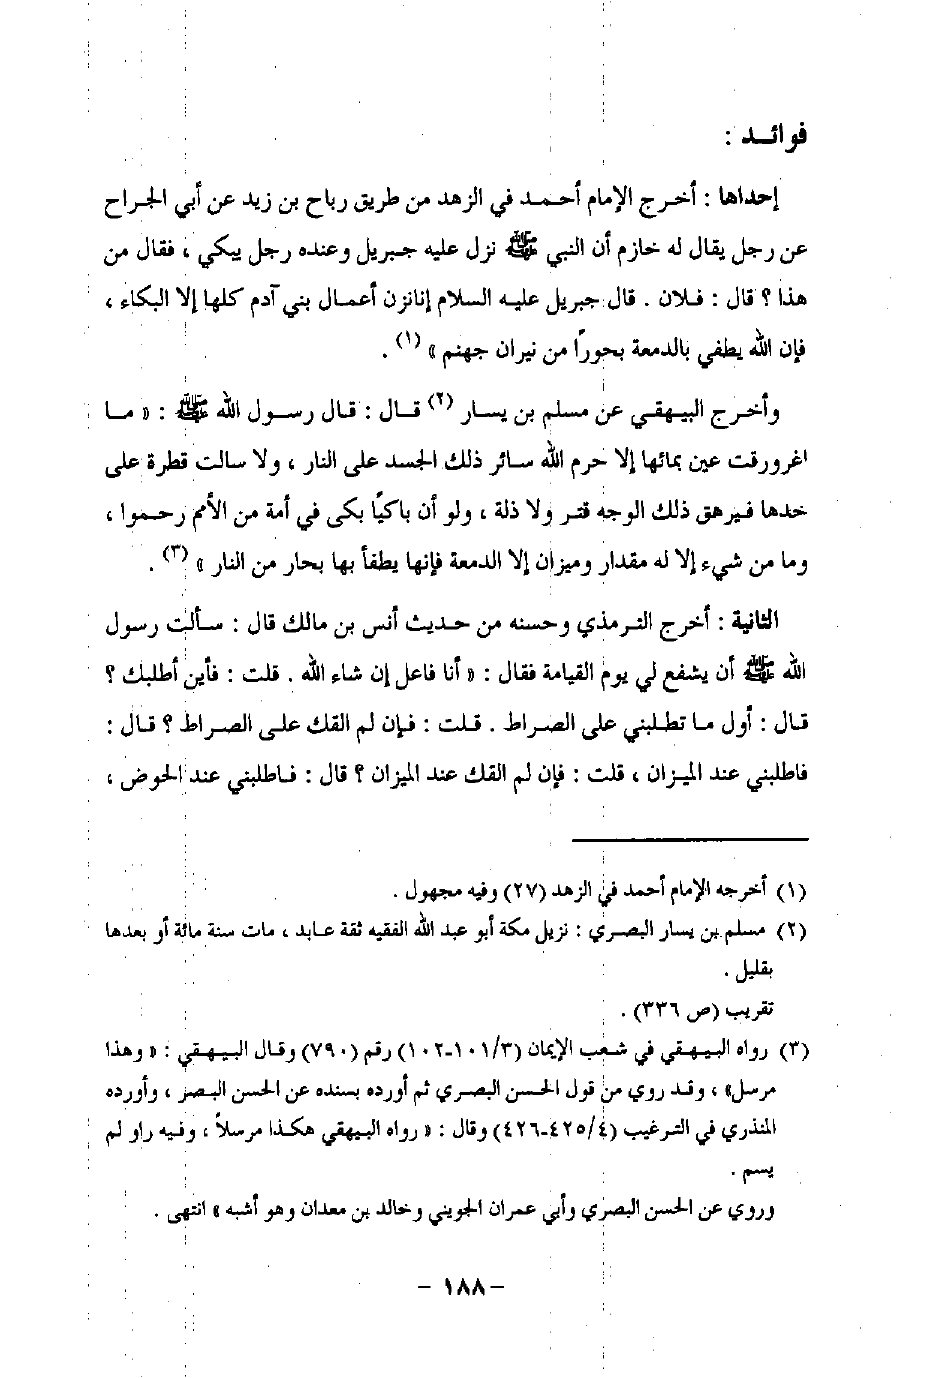 فوائد :
إحداها : أخرج الإمام أحمد في الزهد من طريق رباح بن زيد عن أبي الجراح
عن رجل يقال له خازم أن النبي ﷺ نزل عليه جبريل وعنده رجل يبكي ، فقال من
هذا ؟ قال : فلان . قال جبريل عليه السلام إنانزن أعمال بني آدم كلها إلا البكاء ،
فإن الله يطفي بالدمعة بحورًا من نيران جهنم » (١) .
وأخرج البيهقي عن مسلم بن يسار (٢) قال : قال رسول الله ﷺ : « ما
اغرورقت عين بمائها إلا حرم الله سائر ذلك الجسد على النار ، ولا سالت قطرة على
خدها فيرهق ذلك الوجه قتر ولا ذلة ، ولو أن باكيًا بكى في أمة من الأمم رحموا ،
وما من شيء إلا له مقدار وميزان إلا الدمعة فإنها يطفأ بها بحار من النار » (٣) .
الثانية : أخرج الترمذي وحسنه من حديث أنس بن مالك قال : سألت رسول
الله ﷺ أن يشفع لي يوم القيامة فقال : « أنا فاعل إن شاء الله . قلت : فأين أطلبك ؟
قال : أول ما تطلبني على الصراط . قلت : فإن لم القك على الصراط ؟ قال :
فاطلبني عند الميزان ، قلت : فإن لم القك عند الميزان ؟ قال : فاطلبني عند الحوض ،
(١) أخرجه الإمام أحمد في الزهد (٢٧) وفيه مجهول .
(٢) مسلم بن يسار البصري : نزيل مكة أبو عبد الله الفقيه ثقة عابد ، مات سنة مائة أو بعدها
بقليل .
تقريب (ص ٣٣٦) .
(٣) رواه البيهقي في شعب الإيمان (١٠١/٣-١٠٢) رقم (٧٩٠) وقال البيهقي : « وهذا
مرسل» ، وقد روي من قول الحسن البصري ثم أورده بسنده عن الحسن البصر ، وأورده
المنذري في الترغيب (٤٢٥/٤-٤٢٦) وقال : « رواه البيهقي هكذا مرسلاً ، وفيه راو لم
يسم .
وروي عن الحسن البصري وأبي عمران الجويني وخالد بن معدان وهو أشبه » انتهى .
– ١٨٨ –